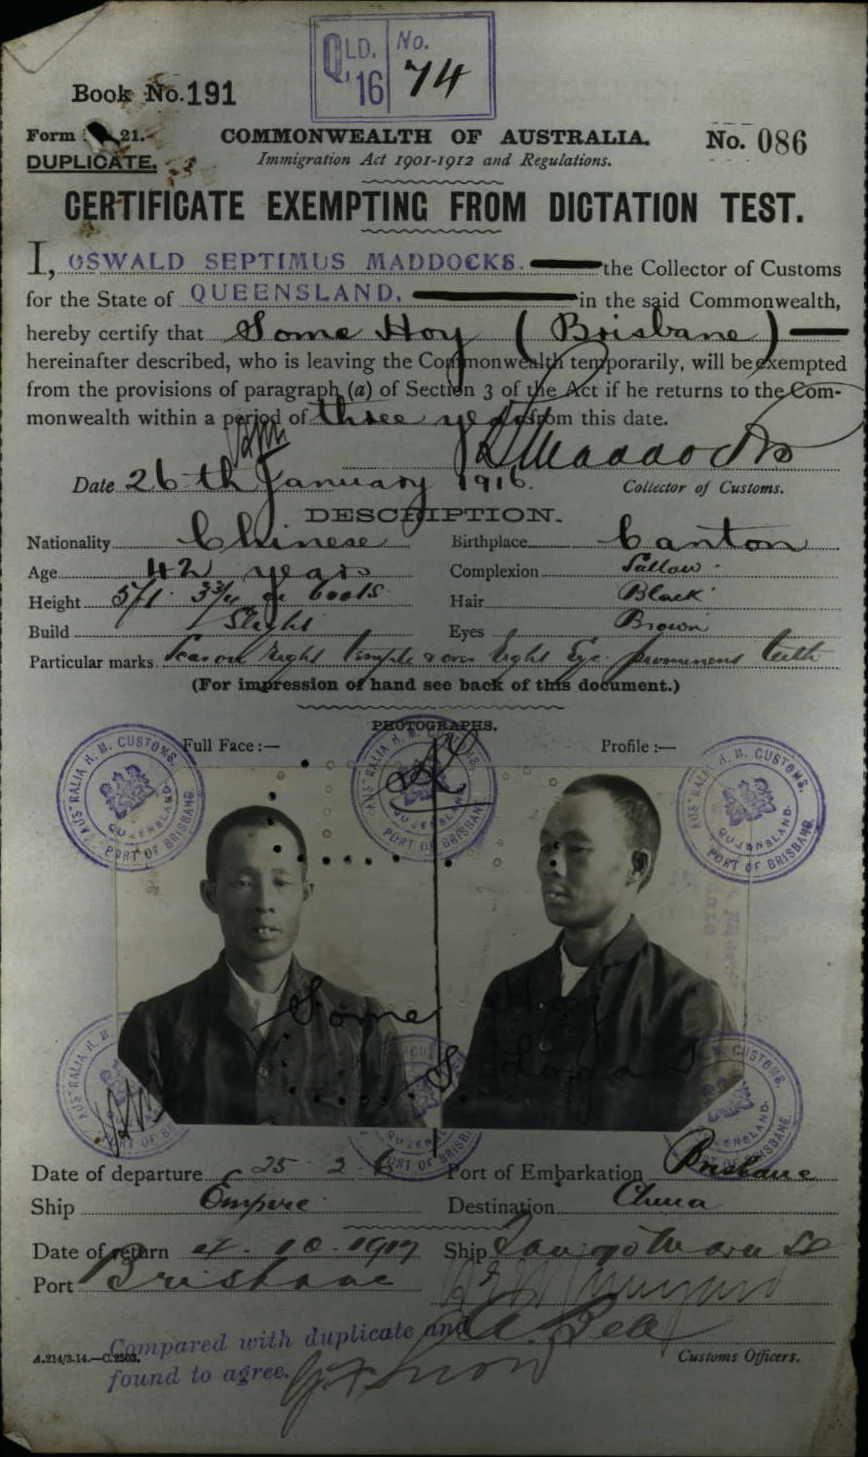 QLD. No.
'16 74
Book No. 191
Form 21.
DUPLICATE.
COMMONWEALTH OF AUSTRALIA.
Immigration Act 1901-1912 and Regulations.
No. 086
CERTIFICATE EXEMPTING FROM DICTATION TEST.
I, OSWALD SEPTIMUS MADDOCKS. the Collector of Customs
for the State of QUEENSLAND, in the said Commonwealth,
hereby certify that Some Hoy (Brisbane)
hereinafter described, who is leaving the Commonwealth temporarily, will be exempted
from the provisions of paragraph (a) of Section 3 of the Act if he returns to the Com-
monwealth within a period of three years from this date.
OSMaddocks
Date 26th January 1916. Collector of Customs.
DESCRIPTION.
Nationality Chinese Birthplace Canton
Age 42 years Complexion Sallow
Height 5ft. 3 3/4 in boots Hair Black
Build Slight Eyes Brown
Particular marks. Scar on right temple & over right Eye. prominent teeth
(For impression of hand see back of this document.)
PHOTOGRAPHS.
Full Face :— Profile :—
AUSTRALIA H. M. CUSTOMS. QUEENSLAND. PORT OF BRISBANE
AUSTRALIA H. M. CUSTOMS. QUEENSLAND. PORT OF BRISBANE
AUSTRALIA H. M. CUSTOMS. QUEENSLAND. PORT OF BRISBANE.
Some Hoy
Date of departure 25 2 Port of Embarkation Brisbane
Ship Empire Destination China
Date of return 4. 10. 1917 Ship
Port Brisbane
Compared with duplicate and
found to agree.
A.214/3.14.—C.2503. Customs Officers.